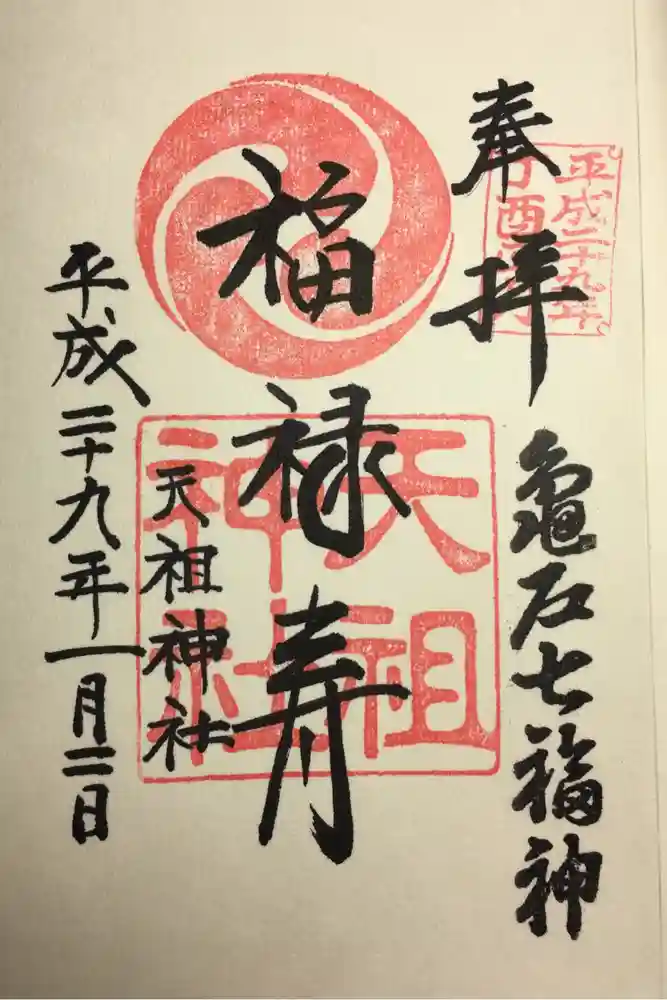 奉拝
平成二十九年
丁酉
亀戸七福神
福禄寿
天祖
神社
天祖神社
平成二十九年一月二日